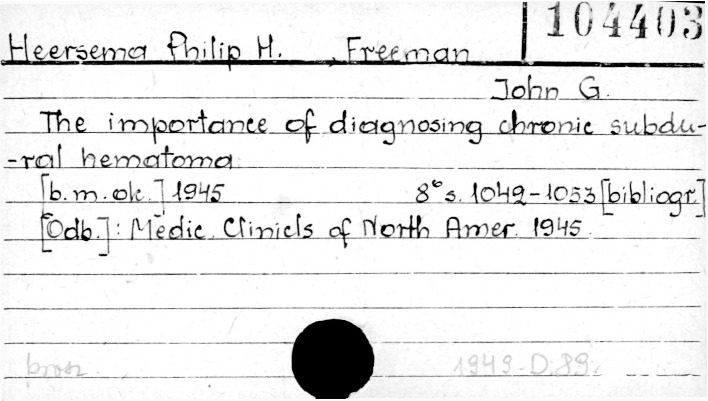 104403
Heersema Philip H., Freeman
John G.
The importance of diagnosing chronic subdu-
-ral hematoma
[b.m.ok.] 1945 8° s. 1049-1053 [bibliogr.]
[Odb.]: Medic. Clinicls of North Amer. 1945.
brosz. 1949.D.89.